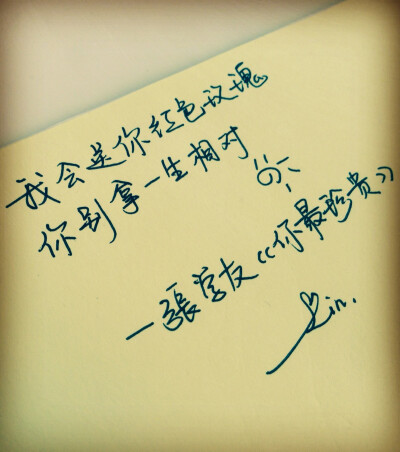 我会送你红色玫瑰
你别拿一生相对
一張学友《你最珍贵》